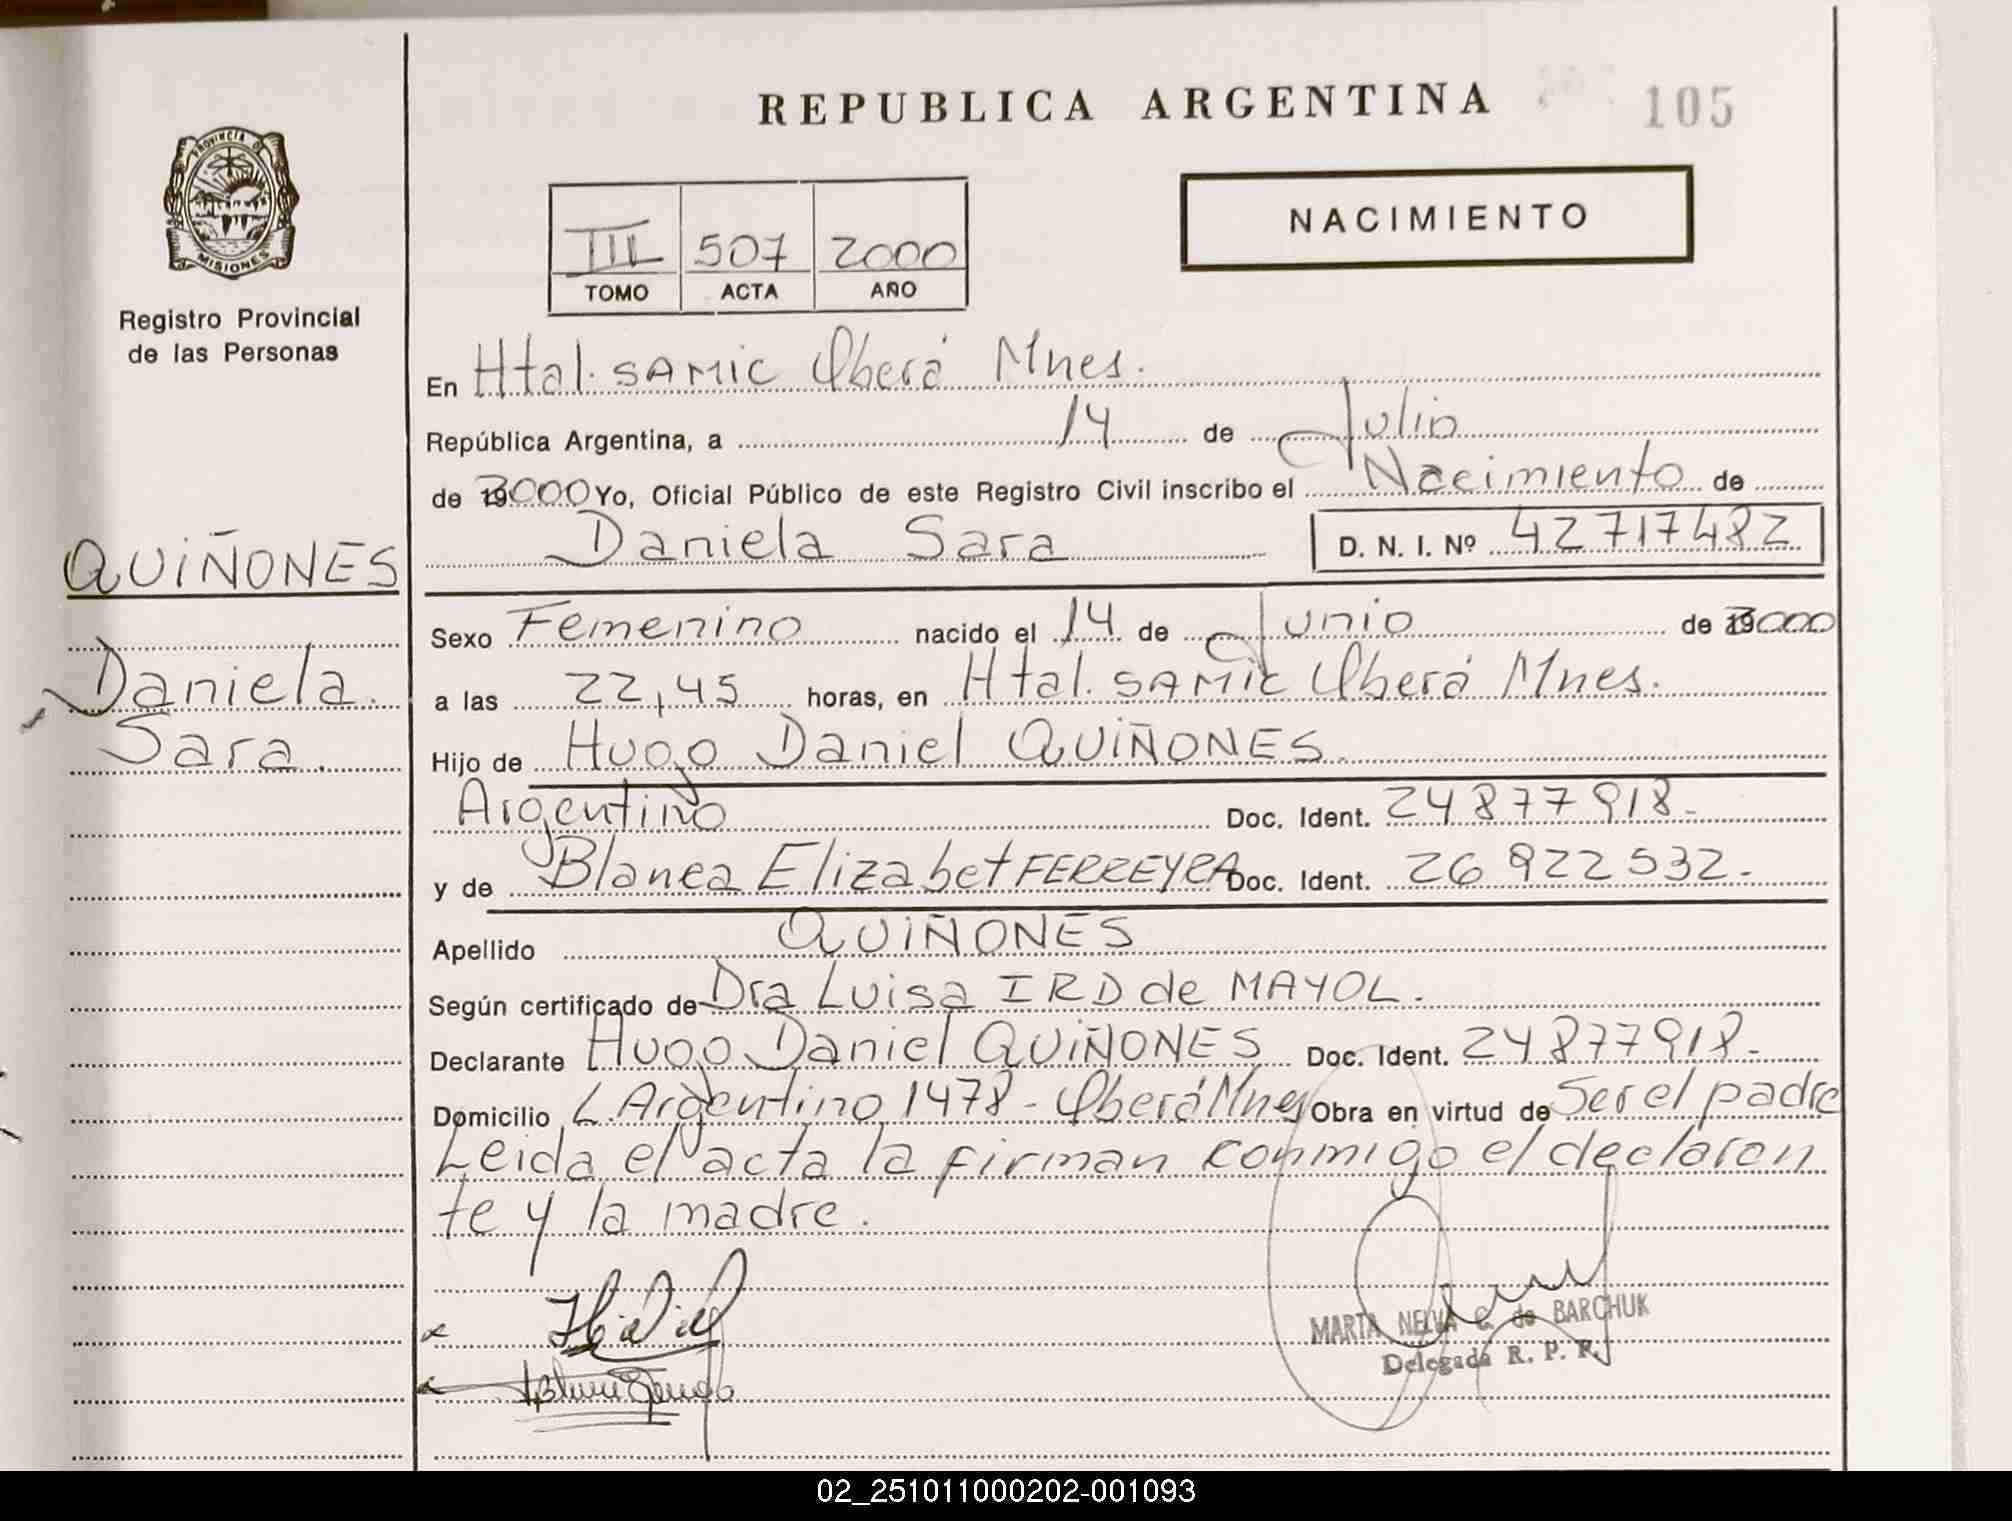 REPUBLICA ARGENTINA
105
PROVINCIA DE
MISIONES
Registro Provincial
de las Personas
III 507 2000
TOMO ACTA AÑO
NACIMIENTO
En Htal. SAMIC Oberá Mnes.
República Argentina, a 14 de Julio
de 2000 Yo, Oficial Público de este Registro Civil inscribo el Nacimiento de
Daniela Sara D. N. I. Nº 42717482
QUIÑONES
Daniela
Sara.
Sexo Femenino nacido el 14 de Junio de 2000
a las 22,45 horas, en Htal. SAMIC Oberá Mnes.
Hijo de Hugo Daniel QUIÑONES
Argentino Doc. Ident. 24877918-
y de Blanca Elizabet FERREYRA Doc. Ident. 26922532-
Apellido QUIÑONES
Según certificado de Dra Luisa IRD de MAYOL.
Declarante Hugo Daniel QUIÑONES Doc. Ident. 24877918-
Domicilio L. Argentino 1478 - Oberá Mnes Obra en virtud de Ser el padre
Leida el acta la firman conmigo el declaran
te y la madre.
MARTA NELVA de BARCHUK
Delegada R. P. P.
02_251011000202-001093